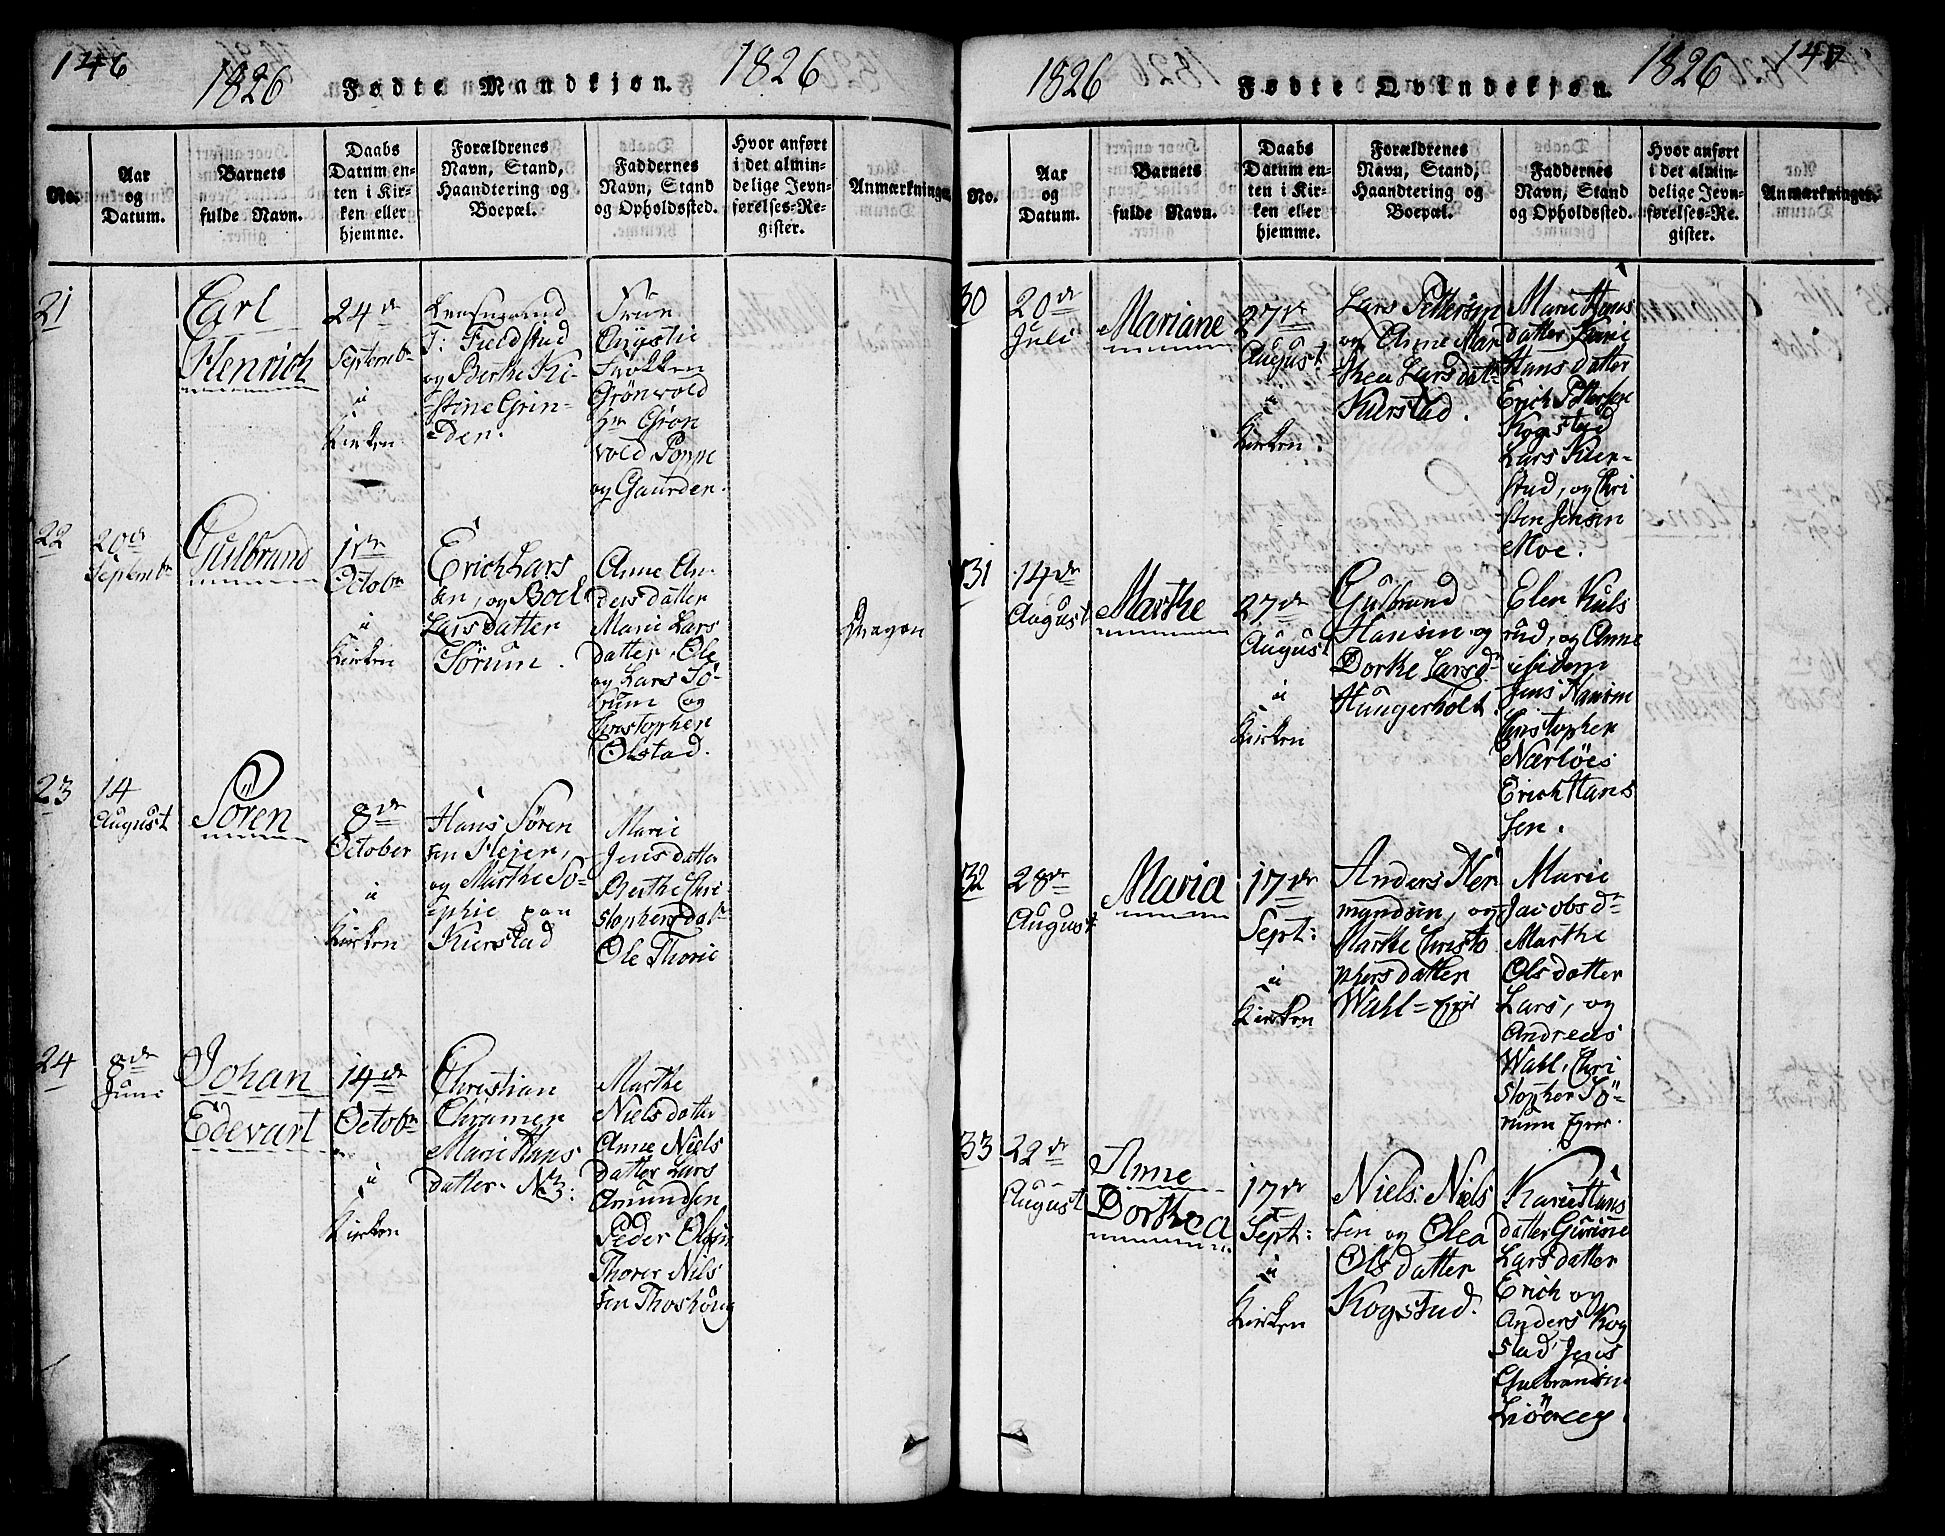 146
1826
Fødte Mandkjøn.
1826
No.
Aar
og
Datum.
Barnets
fulde Navn.
Daabs
Datum en-
ten i Kir-
ken eller
hjemme.
Forældrenes
Navn, Stand,
Haandtering og
Boepæl.
Faddernes
Navn, Stand
og Opholdssted.
Hvor anført
i det almin-
delige Jevn-
førelses-Re-
gister.
Anmærkninger
21
Carl
Henrich
24de
Septembr
i
Kirken
T: Fieldstad
og Berthe Ki-
stine Grin-
den.
Fruе
Grönvold
Hr Grön
vold Poppe
og Gaarden.
22
20de
Septembr
Gulbrand
1ste
Octobr
i
Kirken
Erich Lars
sen, og Boel
Larsdatter
Sörum.
Anne An-
dersdatter
Marie Lars
datter, Ole
og Lars Sö-
rum og
Christopher
Olstad.
Dragon
23
14
August
Sören
8de
October
i
Kirken
Hans Sören
sen Hejer,
og Marthe So-
phie paa
Kierstad
Marie
Jensdatter
Berthe Chri-
stophersdatr
Ole Thorie
24
8de
Juni
Johan
Edevart
14de
Octobr
i
Kirken
Christian
Chramer
Marie Hans
datter
Marthe
Nielsdatter
Anne Niels
datter Lars
Amundsen
Peder Olsen
Thorer Niels
sen
1826
Fødte Qvindekjøn.
1826
147
No.
Aar
og
Datum.
Barnets
fulde Navn.
Daabs
Datum en-
ten i Kir-
ken eller
hjemme.
Forældrenes
Navn, Stand,
Haandtering og
Boepæl.
Faddernes
Navn, Stand
og Opholdssted.
Hvor anført
i det almin-
delige Jevn-
førelses-Re-
gister.
Anmærkninger.
30
20de
Juli
Mariane
27de
August
i
Kirken.
Lars Pettersen
og Anne Mar
thea Larsdatr
Kierstad.
Marie Hans
datter Karie
Hansdatter
Erich Pettersen
Kogstad
Lars Kier-
stad, og Chri
sten Jensen
Moe.
31
14de
August
Marthe
27de
August
i
Kirken
Gulbrand
Hansen og
Dorthe Larsdr
Haugerholt.
Elen Kuls
rud, og Anne
ibidem
Jens Hansen
Christopher
Nærlöes
Erich Hans
sen.
32
28de
August
Maria
17de
Sept:
i
Kirken
Anders Her
mandsen, og
Marthe Christo
phersdatter
Wahl=Ejer
Marie
Jacobsdr
Marthe
Olsdatter
Lars, og
Andreas
Wahl, Chri
stopher Sö-
rum Ejer.
33
22de
August
Anne
Dorthea
17de
Sept:
i
Kirken
Niels Niels
sen og Olea
Olsdatter
Kogstad.
Karie Hans
datter Gurine
Larsdatter
Erich og
Anders Kog
stad Jens
Gulbrandsen